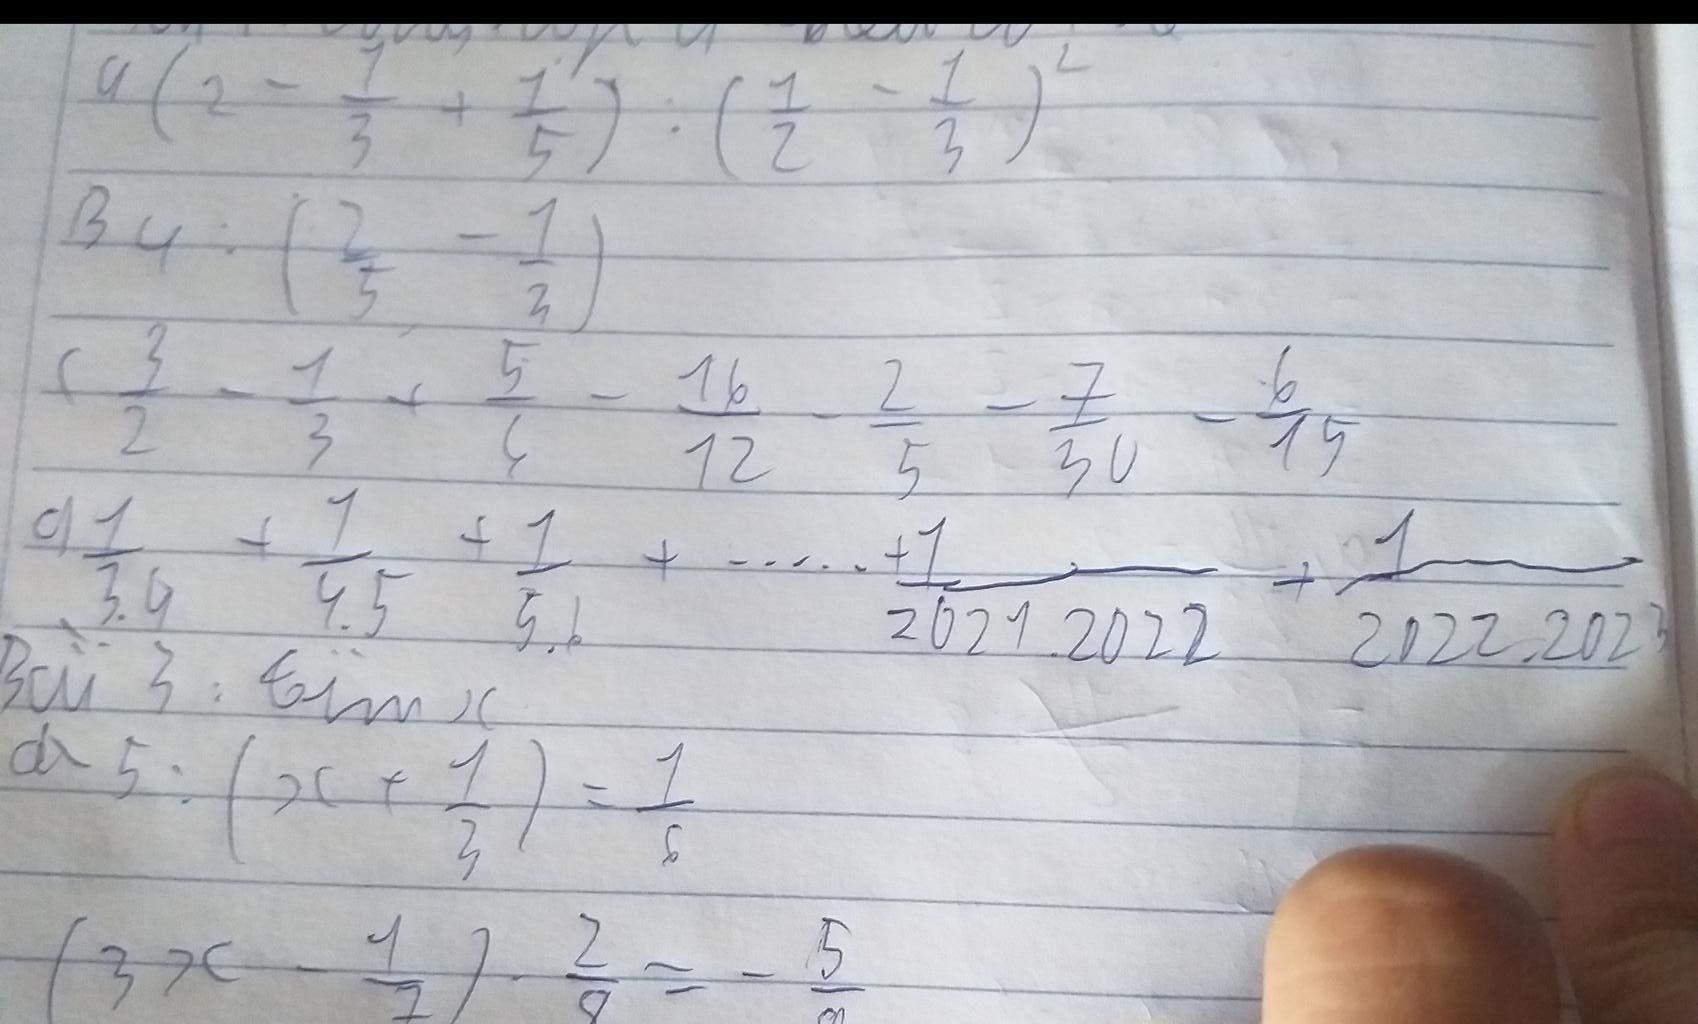 a (2 - 1/3 + 1/5) : (1/2 - 1/3)²
B 4 : (2/5 - 1/3)
c 3/2 - 1/3 + 5/6 - 16/12 - 2/5 - 7/30 - 6/15
d 1/3.4 + 1/4.5 + 1/5.6 + ...... +1/2021.2022 + 1/2022.2023
Bài 3: tìm x
a 5 : (x + 1/3) = 1/6
(3x - 1/7) . 2/8 = -5/